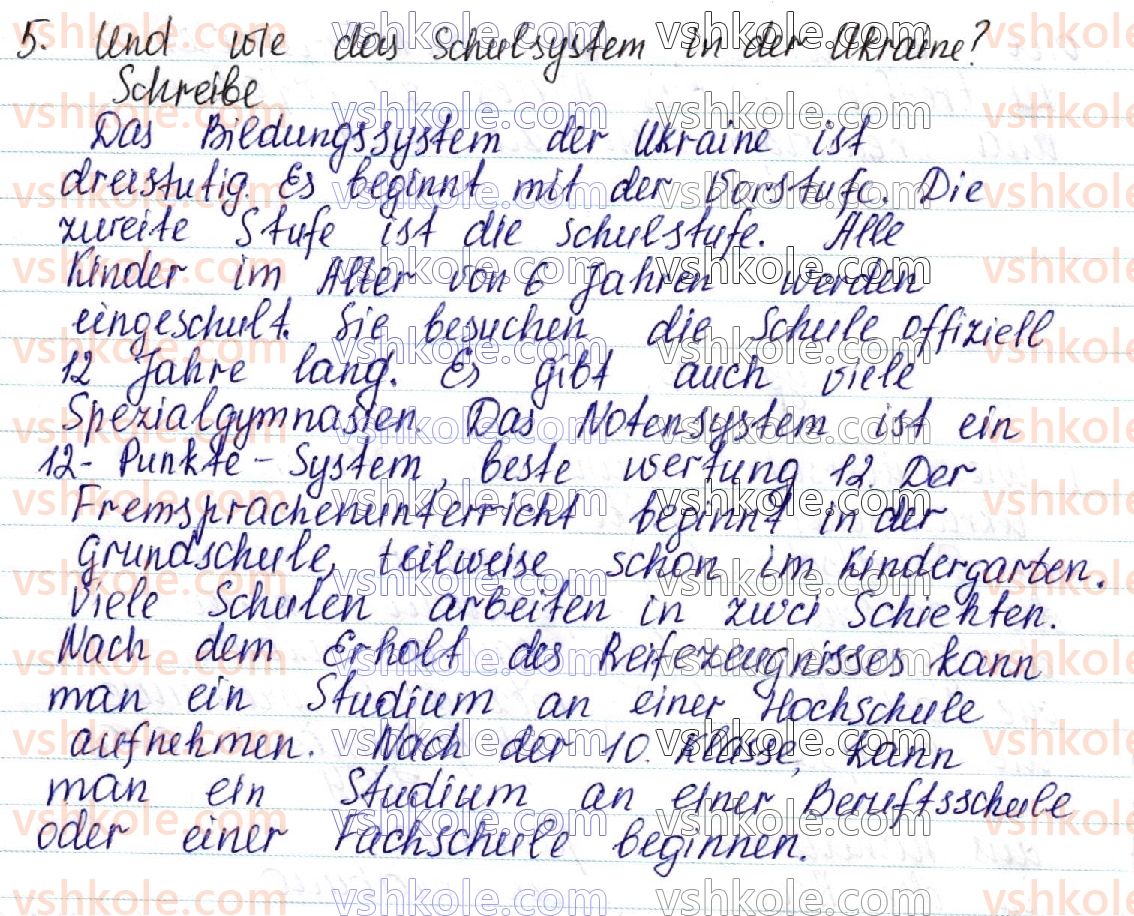 5. Und wie das Schulsystem in der Ukraine?
Schreibe
Das Bildungssystem der Ukraine ist
dreistutig. Es beginnt mit der Vorstufe. Die
zweite Stufe ist die Schulstufe. Alle
Kinder im Alter von 6 Jahren werden
eingeschult. Sie besuchen die Schule offiziell
12 Jahre lang. Es gibt auch viele
Spezialgymnasien. Das Notensystem ist ein
12- Punkte - System, beste wertung 12. Der
Fremsprachenunterricht beginnt in der
Grundschule, teilweise schon im Kindergarten.
Viele Schulen arbeiten in zwei Schiehten.
Nach dem Erholt des Reifezeugnisses kann
man ein Studium an einer Hochschule
aufnehmen. Nach der 10. Klasse, kann
man ein Studium an einer Beruftsschule
oder einer Fachschule beginnen.
vshkole.com